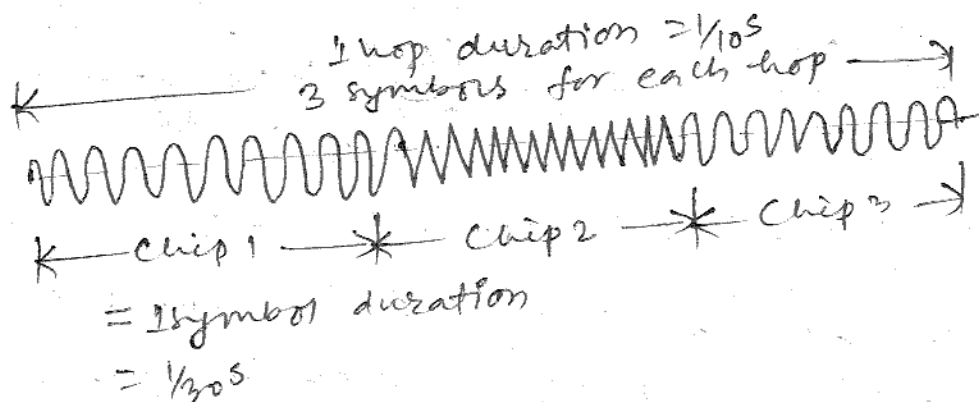 1 hop duration = 1/10 s
3 symbols for each hop
Chip 1 Chip 2 Chip 3
= 1 symbol duration
= 1/30 s